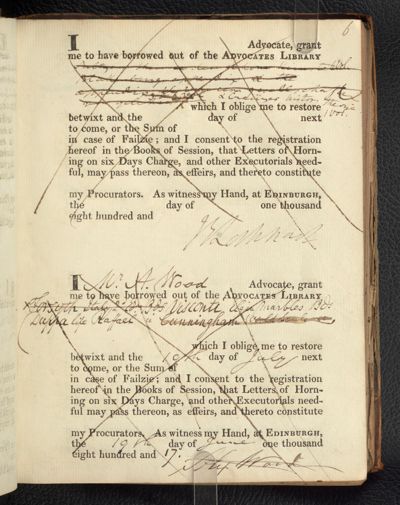 6
I Advocate, grant
me to have borrowed out of the ADVOCATES LIBRARY
which I oblige me to restore
betwixt and the day of next
to come, or the Sum of
in case of Failzie; and I consent to the registration
hereof in the Books of Session, that Letters of Horn-
ing on six Days Charge, and other Executorials need-
ful, may pass thereon, as effeirs, and thereto constitute
my Procurators. As witness my Hand, at EDINBURGH,
the day of one thousand
eight hundred and
I Mr. A. Wood Advocate, grant
me to have borrowed out of the ADVOCATES LIBRARY
Forsyth Italy Visconti, Elgin Marbles,
Duppa Life Raffael Cunningham
which I oblige me to restore
betwixt and the 19th day of July next
to come, or the Sum of
in case of Failzie; and I consent to the registration
hereof in the Books of Session, that Letters of Horn-
ing on six Days Charge, and other Executorials need-
ful may pass thereon, as effeirs, and thereto constitute
my Procurators. As witness my Hand, at EDINBURGH,
the 19th day of June one thousand
eight hundred and 17.
Wood